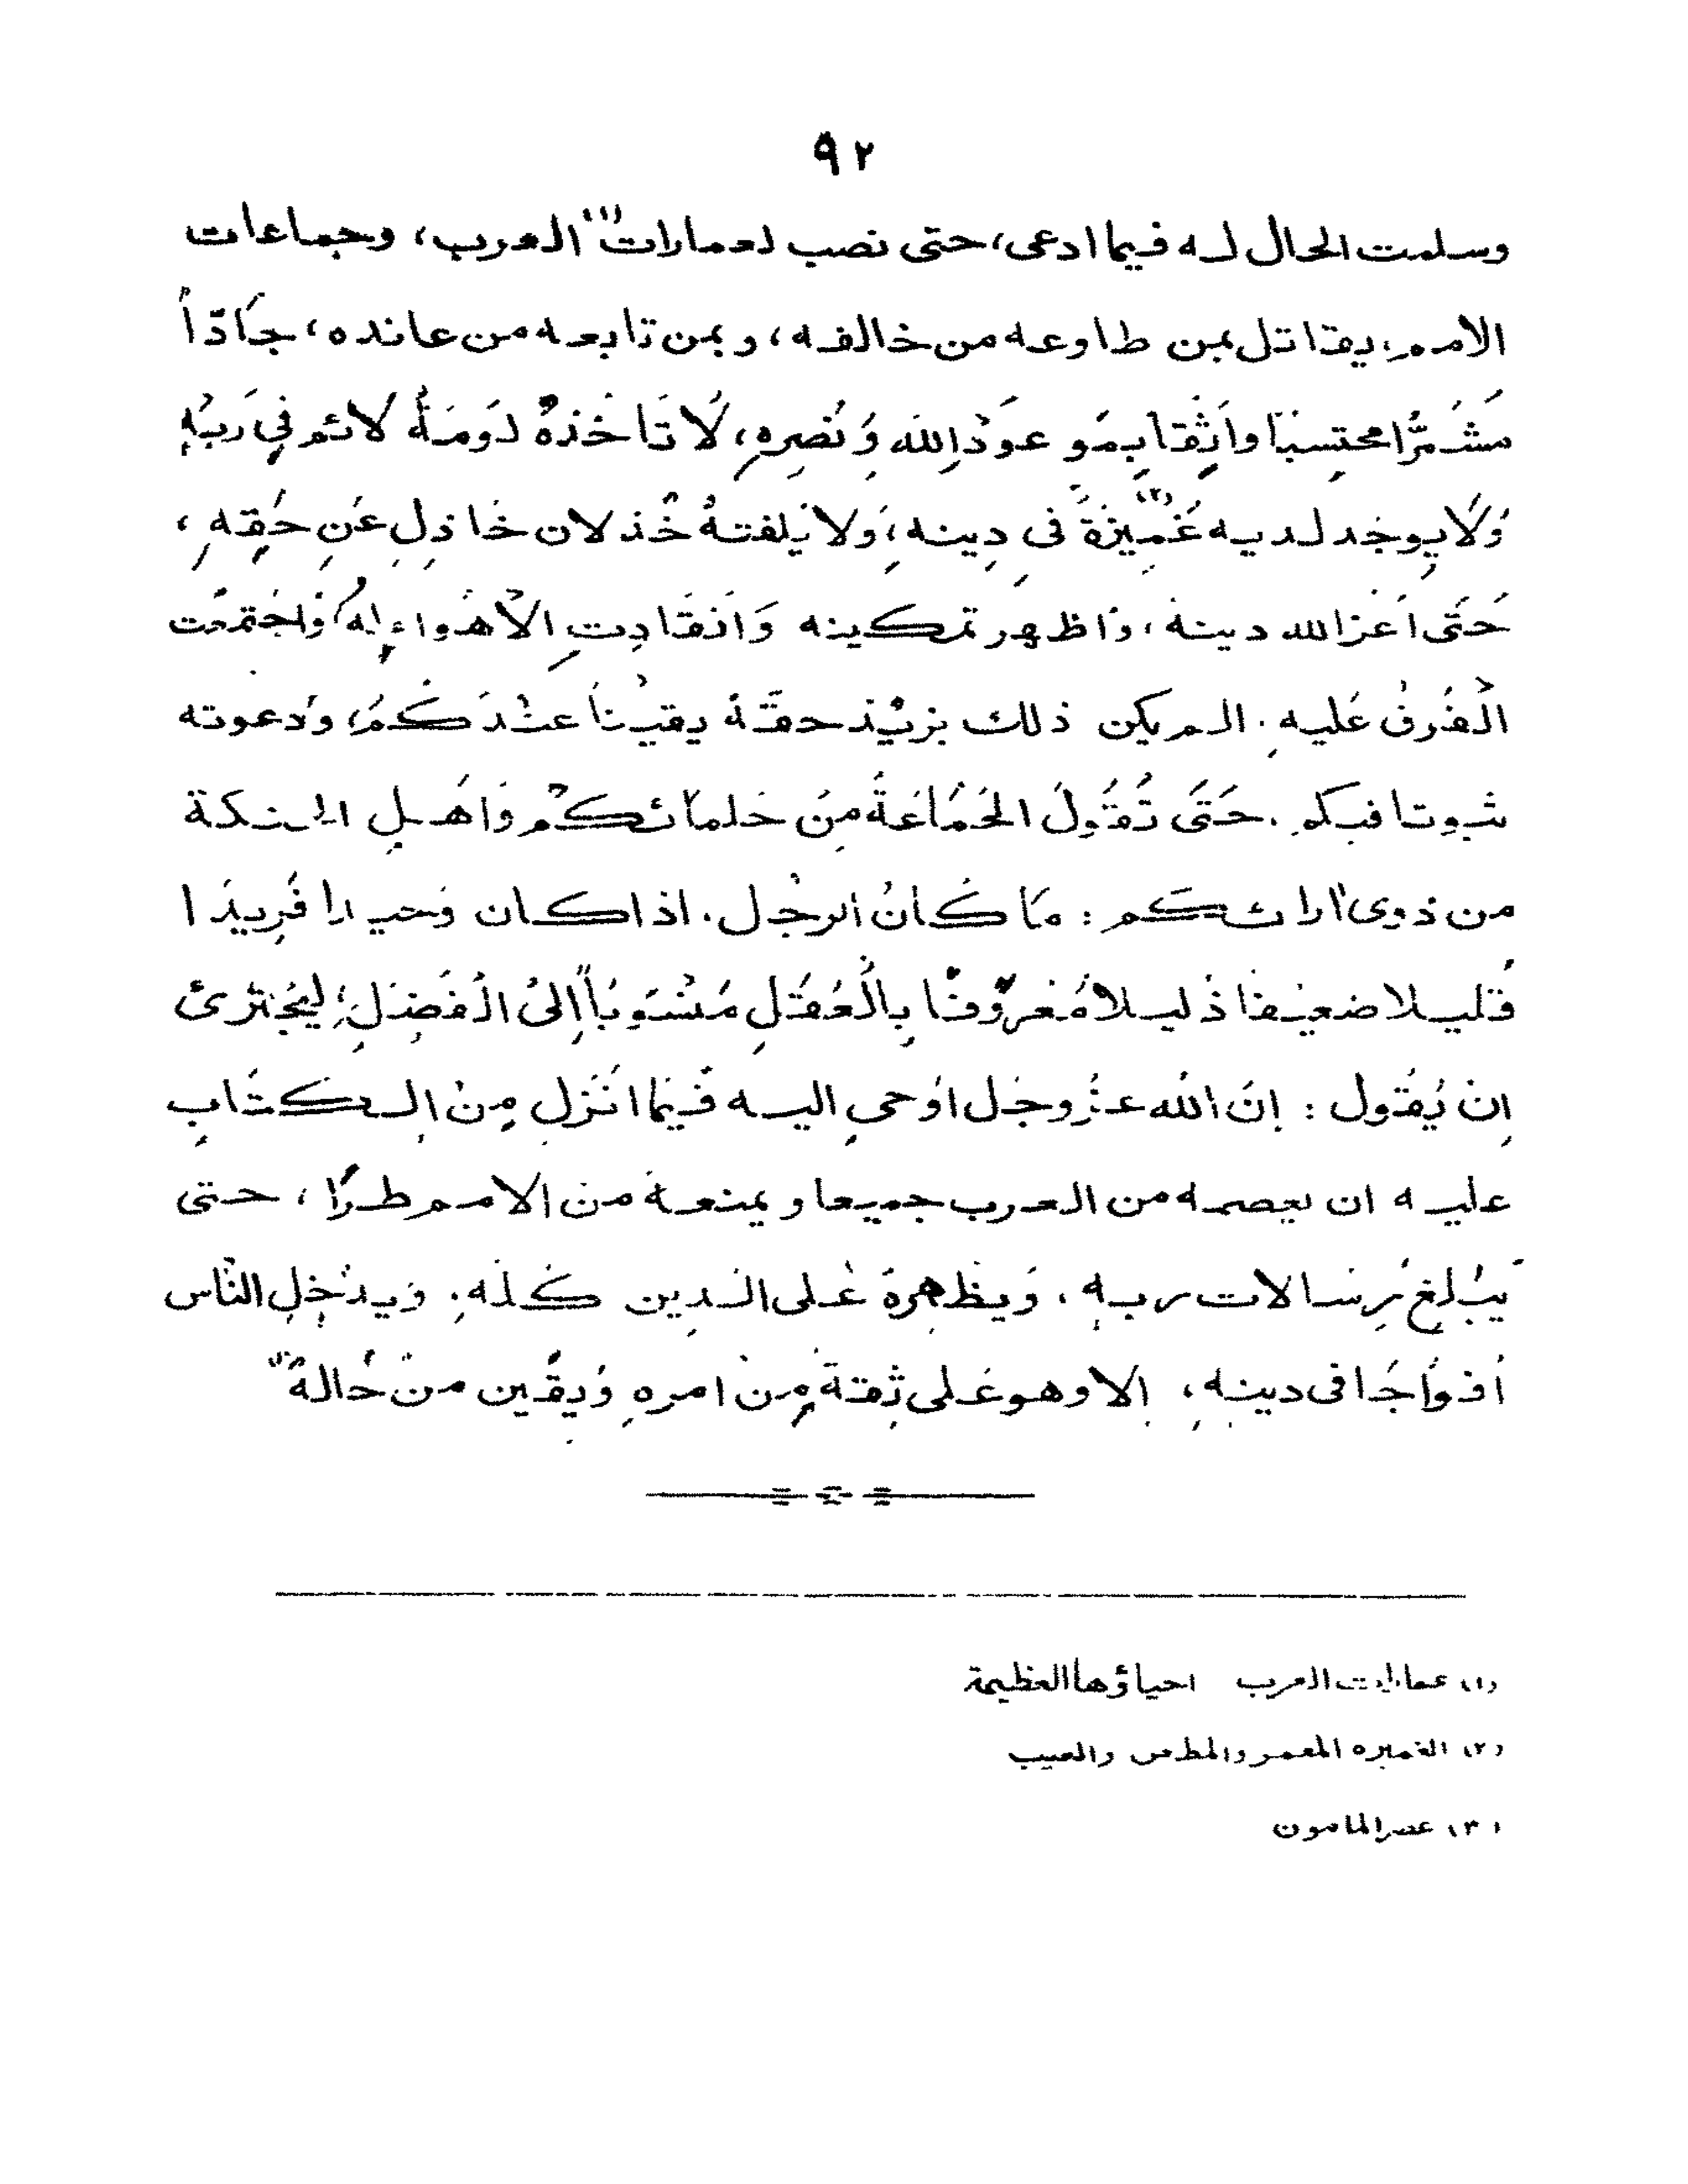 ٩٢
وسلمت الحال له فيما ادعى، حتى نصب لعمارات (١) العرب، وجماعات
الامم، يقاتل بمن طاوعه من خالفه، وبمن تابعه من عانده، جَادّاً
مشَمِّرًا محتسِبًا واثِقًا بِمَوعودِ اللهِ وَنَصرِهِ، لَا تَأخُذُهُ لَومَةُ لائم فِي رَبِّهِ
وَلَا يوجَد لديه غَمِيزَةٌ (٢) فى دِينِه، وَلا يَلفتهُ خُذلان خاذِلٍ عَن حَقِّهِ،
حَتَّى أَعَزَّ الله دينهُ، وَاظهر تمكينه وَانقَادتِ الأهْواء لِهُ، وَاجتمَعَت
الْفُرقُ عَليهِ. الم يكن ذلك يزيْدُ حقَّهُ يقيْناً عنْدَكُمْ، وَدعوته
ثبوتا فيكم. حَتَّى تَقُولَ الجَمَاعَةُ مِنْ حلمَائكُمْ وَاهلِ الحنكة
من ذوى ارائكُم : مَا كَانَ الرجُل. اذا كان وَحيدا فَرِيدًا
قَليلا ضعيْفا ذَليلاً مَعْرُوفًا بِالْعَقلِ مَنْسُوبًا إلىَ الْفَضلِ، لِيَجْترئ
اِنْ يَقُول : اِنَّ اللهَ عزَّ وجَل اوحى اليه فيْمَا انَزل مِنَ الكتَابِ
عليه ان يعصمه من العرب جميعا ويمنعهَ منَ الامم طرًّا، حتى
يَبْلغَ رسَالات ربه، وَيظهرهُ عَلى الدينِ كُلّهِ. وَيدخل النَّاس
اَفوَاجًا فى دينه، إلا وهو عَلى ثِقَة مِنْ امرهِ وَيقين من حَالهِ (٣)
(١) عمارات العرب احياؤها العظيمة
(٢) الغميزه المغمز والمطعن والعيب
(٣) عصر المامون